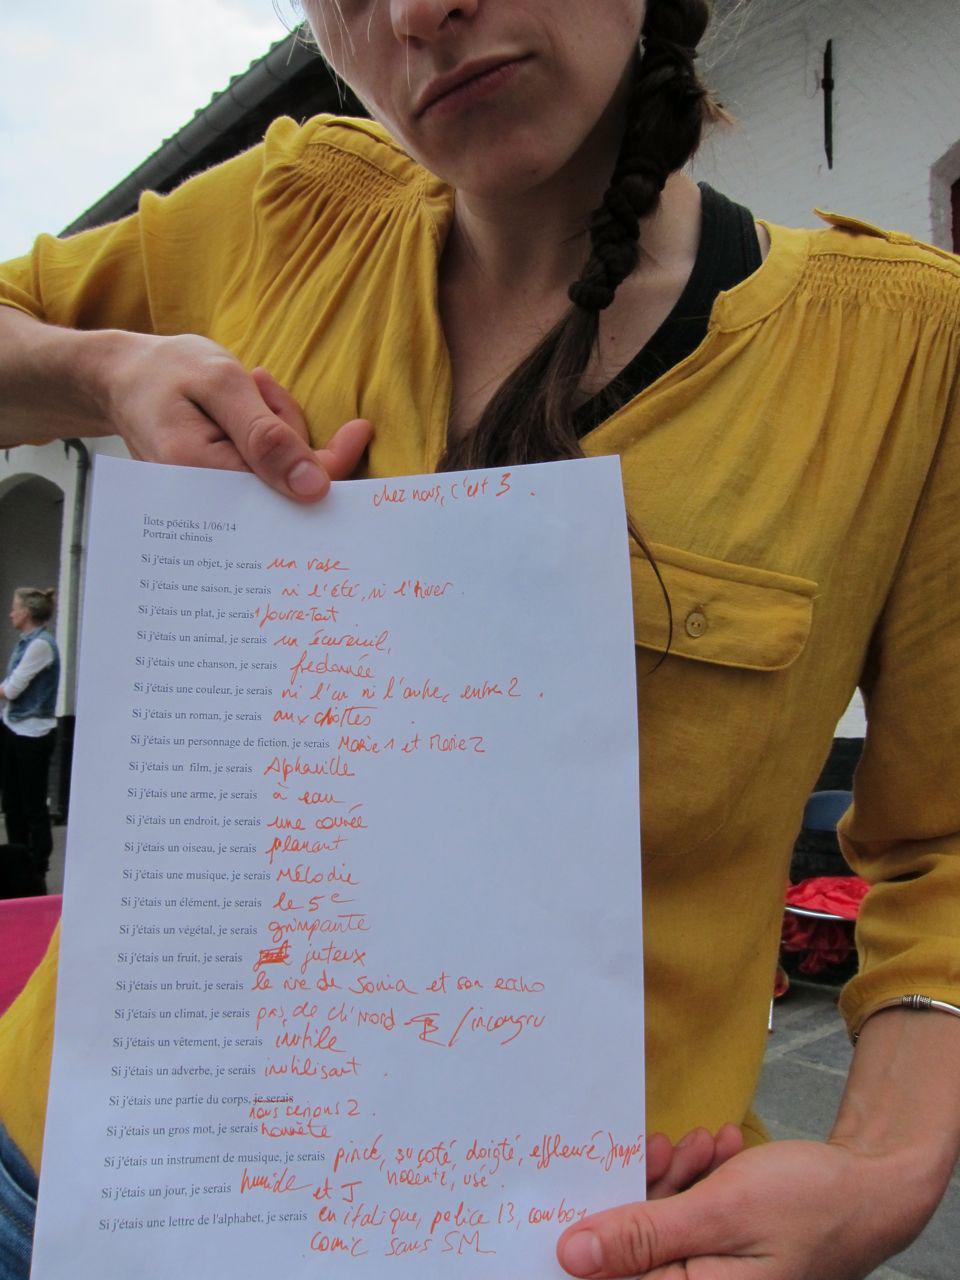 chez nous, c'est 3.
Îlots pöétiks 1/06/14
Portrait chinois
Si j'étais un objet, je serais un vase
Si j'étais une saison, je serais ni l'été, ni l'hiver.
Si j'étais un plat, je serais 1 fourre-tout
Si j'étais un animal, je serais un écureuil,
Si j'étais une chanson, je serais fredonnée
Si j'étais une couleur, je serais ni l'un ni l'autre, entre 2.
Si j'étais un roman, je serais aux chiottes.
Si j'étais un personnage de fiction, je serais Marie 1 et Marie 2
Si j'étais un film, je serais Alphaville
Si j'étais une arme, je serais à eau
Si j'étais un endroit, je serais une courée
Si j'étais un oiseau, je serais planant
Si j'étais une musique, je serais Mélodie
Si j'étais un élément, je serais le 5e
Si j'étais un végétal, je serais grimpante
Si j'étais un fruit, je serais juteux
Si j'étais un bruit, je serais le rire de Sonia et son echo
Si j'étais un climat, je serais pas de ch'Nord /incongru
Si j'étais un vêtement, je serais inutile
Si j'étais un adverbe, je serais inutilisant.
Si j'étais une partie du corps, je serais
nous serions 2.
Si j'étais un gros mot, je serais honnête
Si j'étais un instrument de musique, je serais pincé, suçoté, doigté, effleuré, frappé,
usé.
Si j'étais un jour, je serais humide et J
Si j'étais une lettre de l'alphabet, je serais en italique, police 13, cowboy
comic sans SM